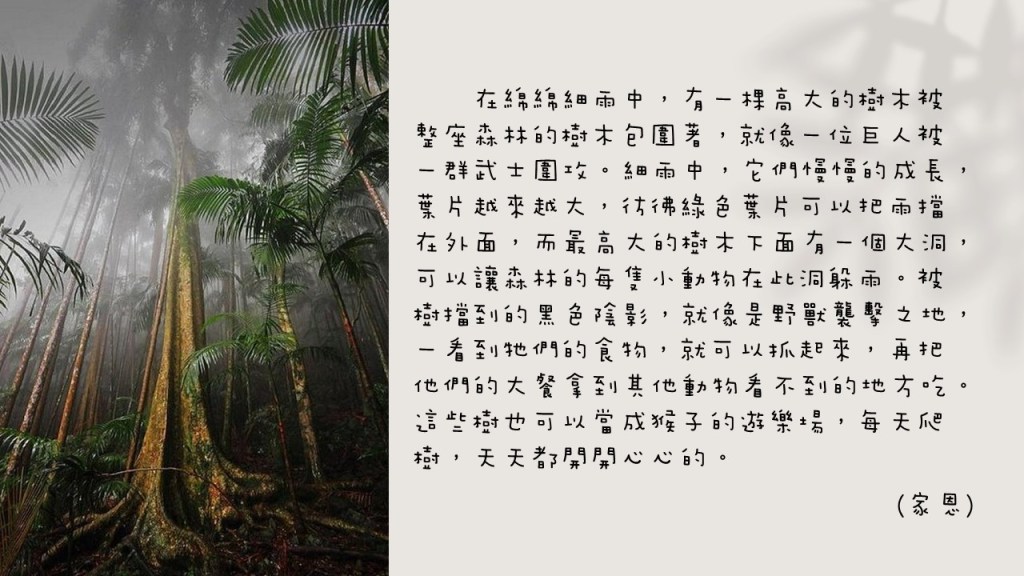 在綿綿細雨中，有一棵高大的樹木被
整座森林的樹木包圍著，就像一位巨人被
一群武士圍攻。細雨中，它們慢慢的成長，
葉片越來越大，彷彿綠色葉片可以把雨擋
在外面，而最高大的樹木下面有一個大洞，
可以讓森林的每隻小動物在此洞躲雨。被
樹擋到的黑色陰影，就像是野獸襲擊之地，
一看到牠們的食物，就可以抓起來，再把
他們的大餐拿到其他動物看不到的地方吃。
這些樹也可以當成猴子的遊樂場，每天爬
樹，天天都開開心心的。
(家恩)